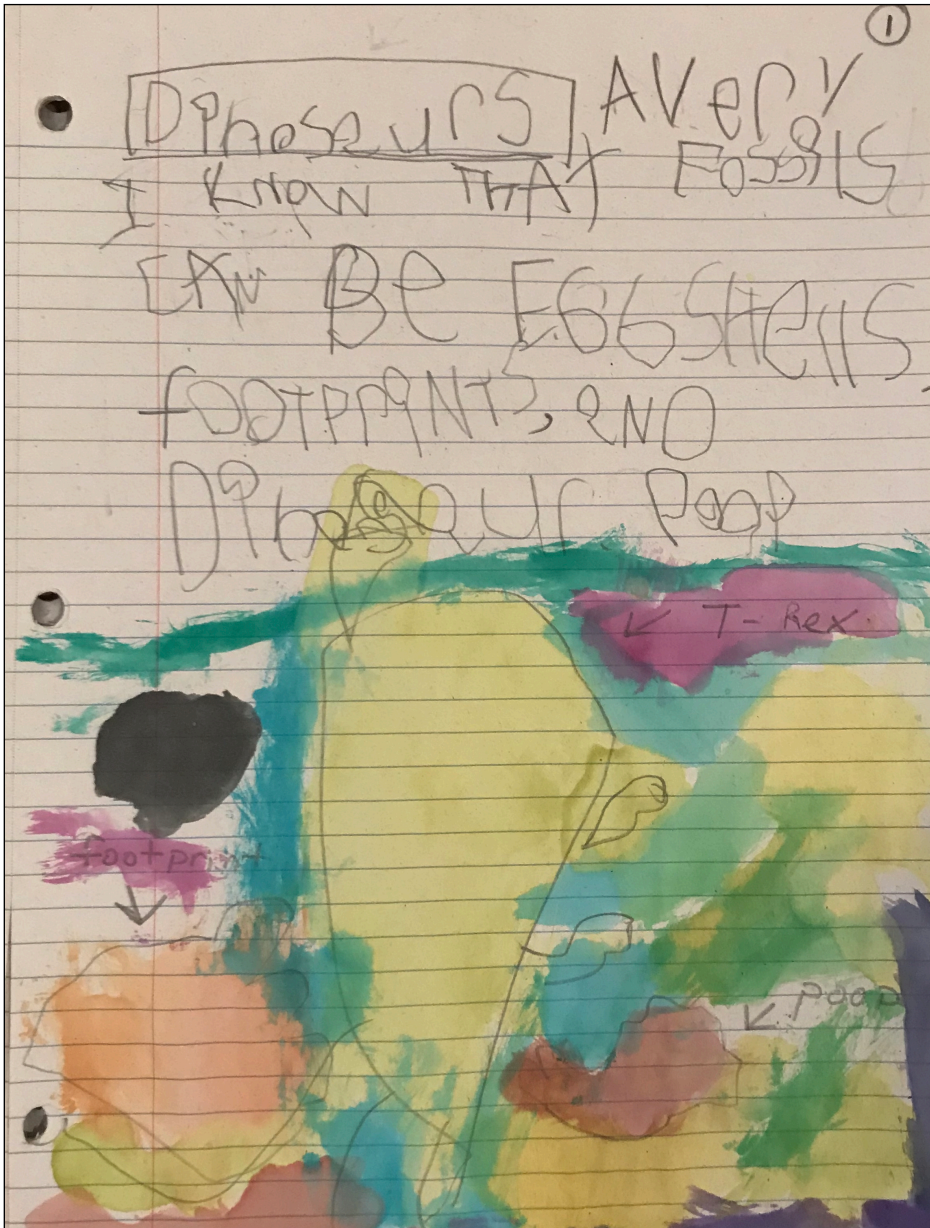 1
DiNoseurs AVery
I KnoW THAT FossiIS
CAN Be EGGSHellS,
fOOTPRiNTS, aND
DiNoSaur Poop
T-Rex
footprint
Poop